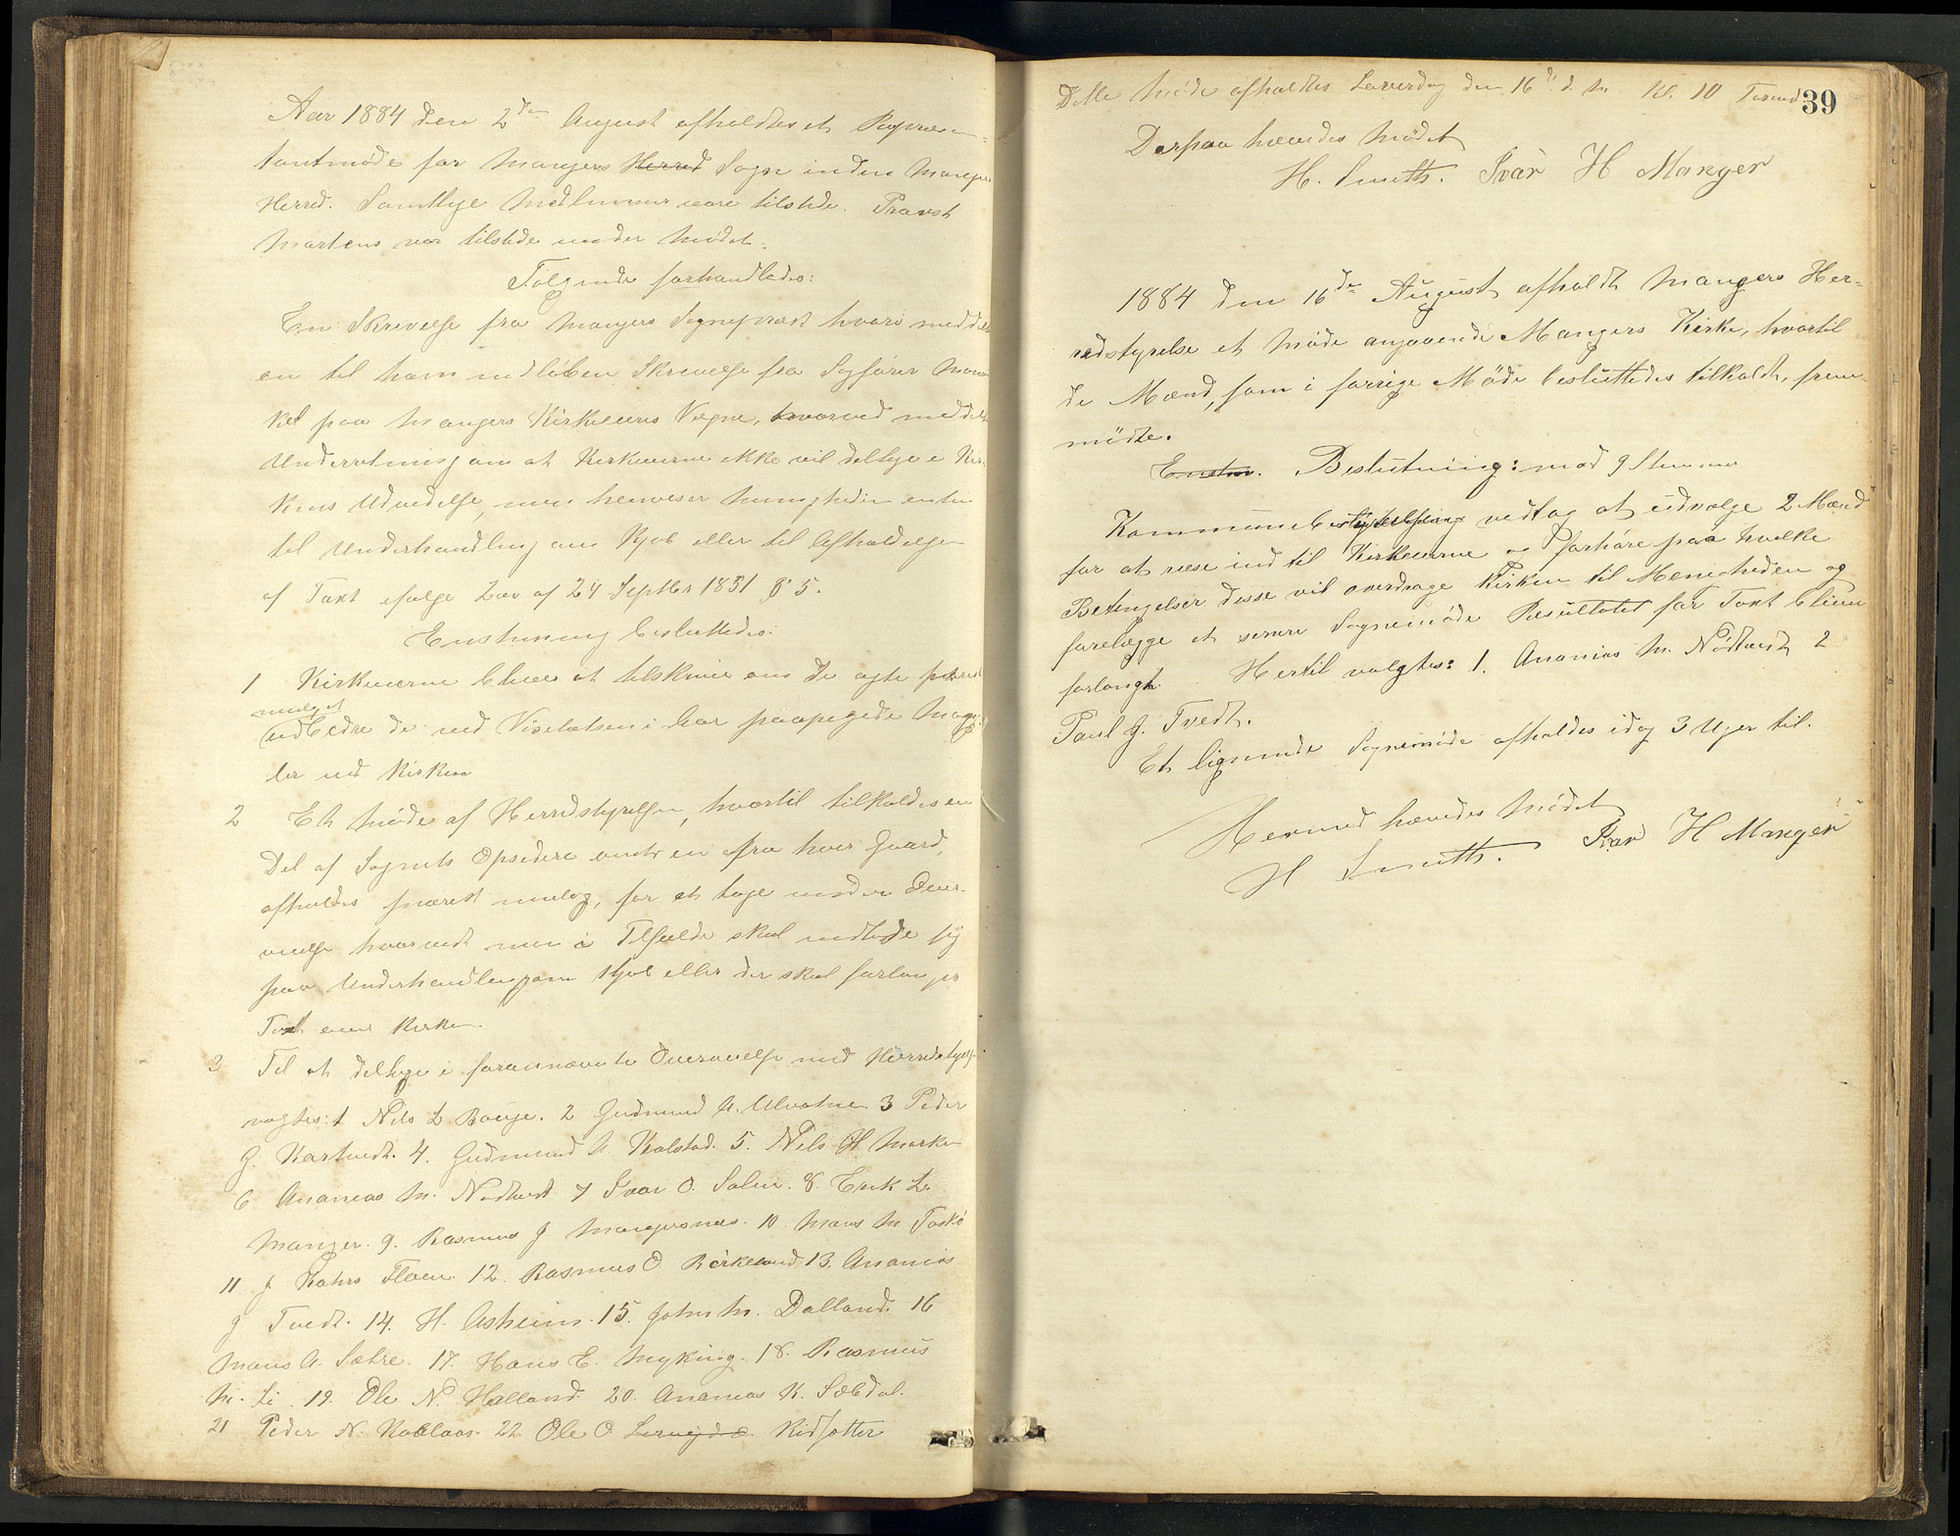 Aar 1884 den 2den August afholdtes et Repræsen-
tantmøde for Mangers Herred Sogn inden Mangers
Herred. Samtlige Medlemmer vare tilstede. Provst
Martens var tilstede under Mødet.
Følgende forhandledes:
En Skrivelse fra Mangers Sogneprest hvori meddeles
en til ham indløben Skrivelse fra Sagfører
paa Mangers Kirkeeiers Vegne, hvorved meddeles
Underretning om at Kirkeeierne ikke vil deltage i Kir-
kens Udvidelse, men henviser Menigheden enten
til Underhandling om Kjøb eller til Afholdelse
af Taxt ifølge Lov af 24 Septbr 1831 § 5.
Enstemmig besluttedes:
1 Kirkeeierne blive at tilskrive om de agte snarest
muligt
udbedre de ved Visitatsen i Aar paapegede Mang-
ler ved Kirken
2 Et Møde af Herredstyrelsen, hvortil tilkaldes en
Del af Sognets Opsidere omtr en fra hver Gaard,
afholdes snarest mulig, for at tage under Over-
veielse hvorvidt man i Tilfælde skal indlade sig
paa Underhandling om Kjøb eller der skal forlanges
Taxt over Kirken.
3 Til at deltage i forannævnte Overveielse med Herredstyrelse
valgtes: 1 Nils L Bøuge. 2 Gudmund A. Ulvatne 3 Peder
J. Kartvedt. 4. Gudmund A Kolstad. 5. Nils H Marken
6 Ananias M. Nødtvedt 7 Ivar O. Solem. 8. Erik L.
Manger. 9. Rasmus J Mangersnes. 10. Mons M Toske
11 J Kahrs Floen. 12. Rasmus O. Birkeland 13. Ananias
J Tvedt. 14. H. Asheim. 15. John M. Dalland. 16
Mons A. Sætre. 17. Hans E. Myking. 18. Rasmus
M. Li. 19. Ole N. Halland. 20. Ananias K. Sæbdal.
21 Peder N. Koblaas. 22 Ole O Lervigdal. Kidsotter
Dette Møde afholdtes Løverdag den 16d d. M. Kl. 10 Formd 39
Derpaa hævedes Mødet
H. Smith. Ivar H Manger
1884 den 16de August afholdt Mangers Her-
redstyrelse et Møde angaaende Mangers Kirke, hvortil
de Mænd, som i forrige Møde besluttedes tilkaldt, frem-
mødte.
Enstm. Beslutning: mod 9 Stemmer
Kommunebestyrelsen vedtog at udvælge 2 Mænd
for at reise ind til Kirkeeierne og forhøre paa hvilke
Betingelser disse vil overdrage Kirken til Menigheden og
forelægge et senere Sognemøde Resultatet før Taxt bliver
forlangt. Hertil valgtes: 1. Ananias M. Nødtvedt 2
Paul J. Tvedt.
Et lignende Sognemøde afholdes idag 3 Uger til.
Hermed hævedes Mødet
H Smith. Ivar H Manger